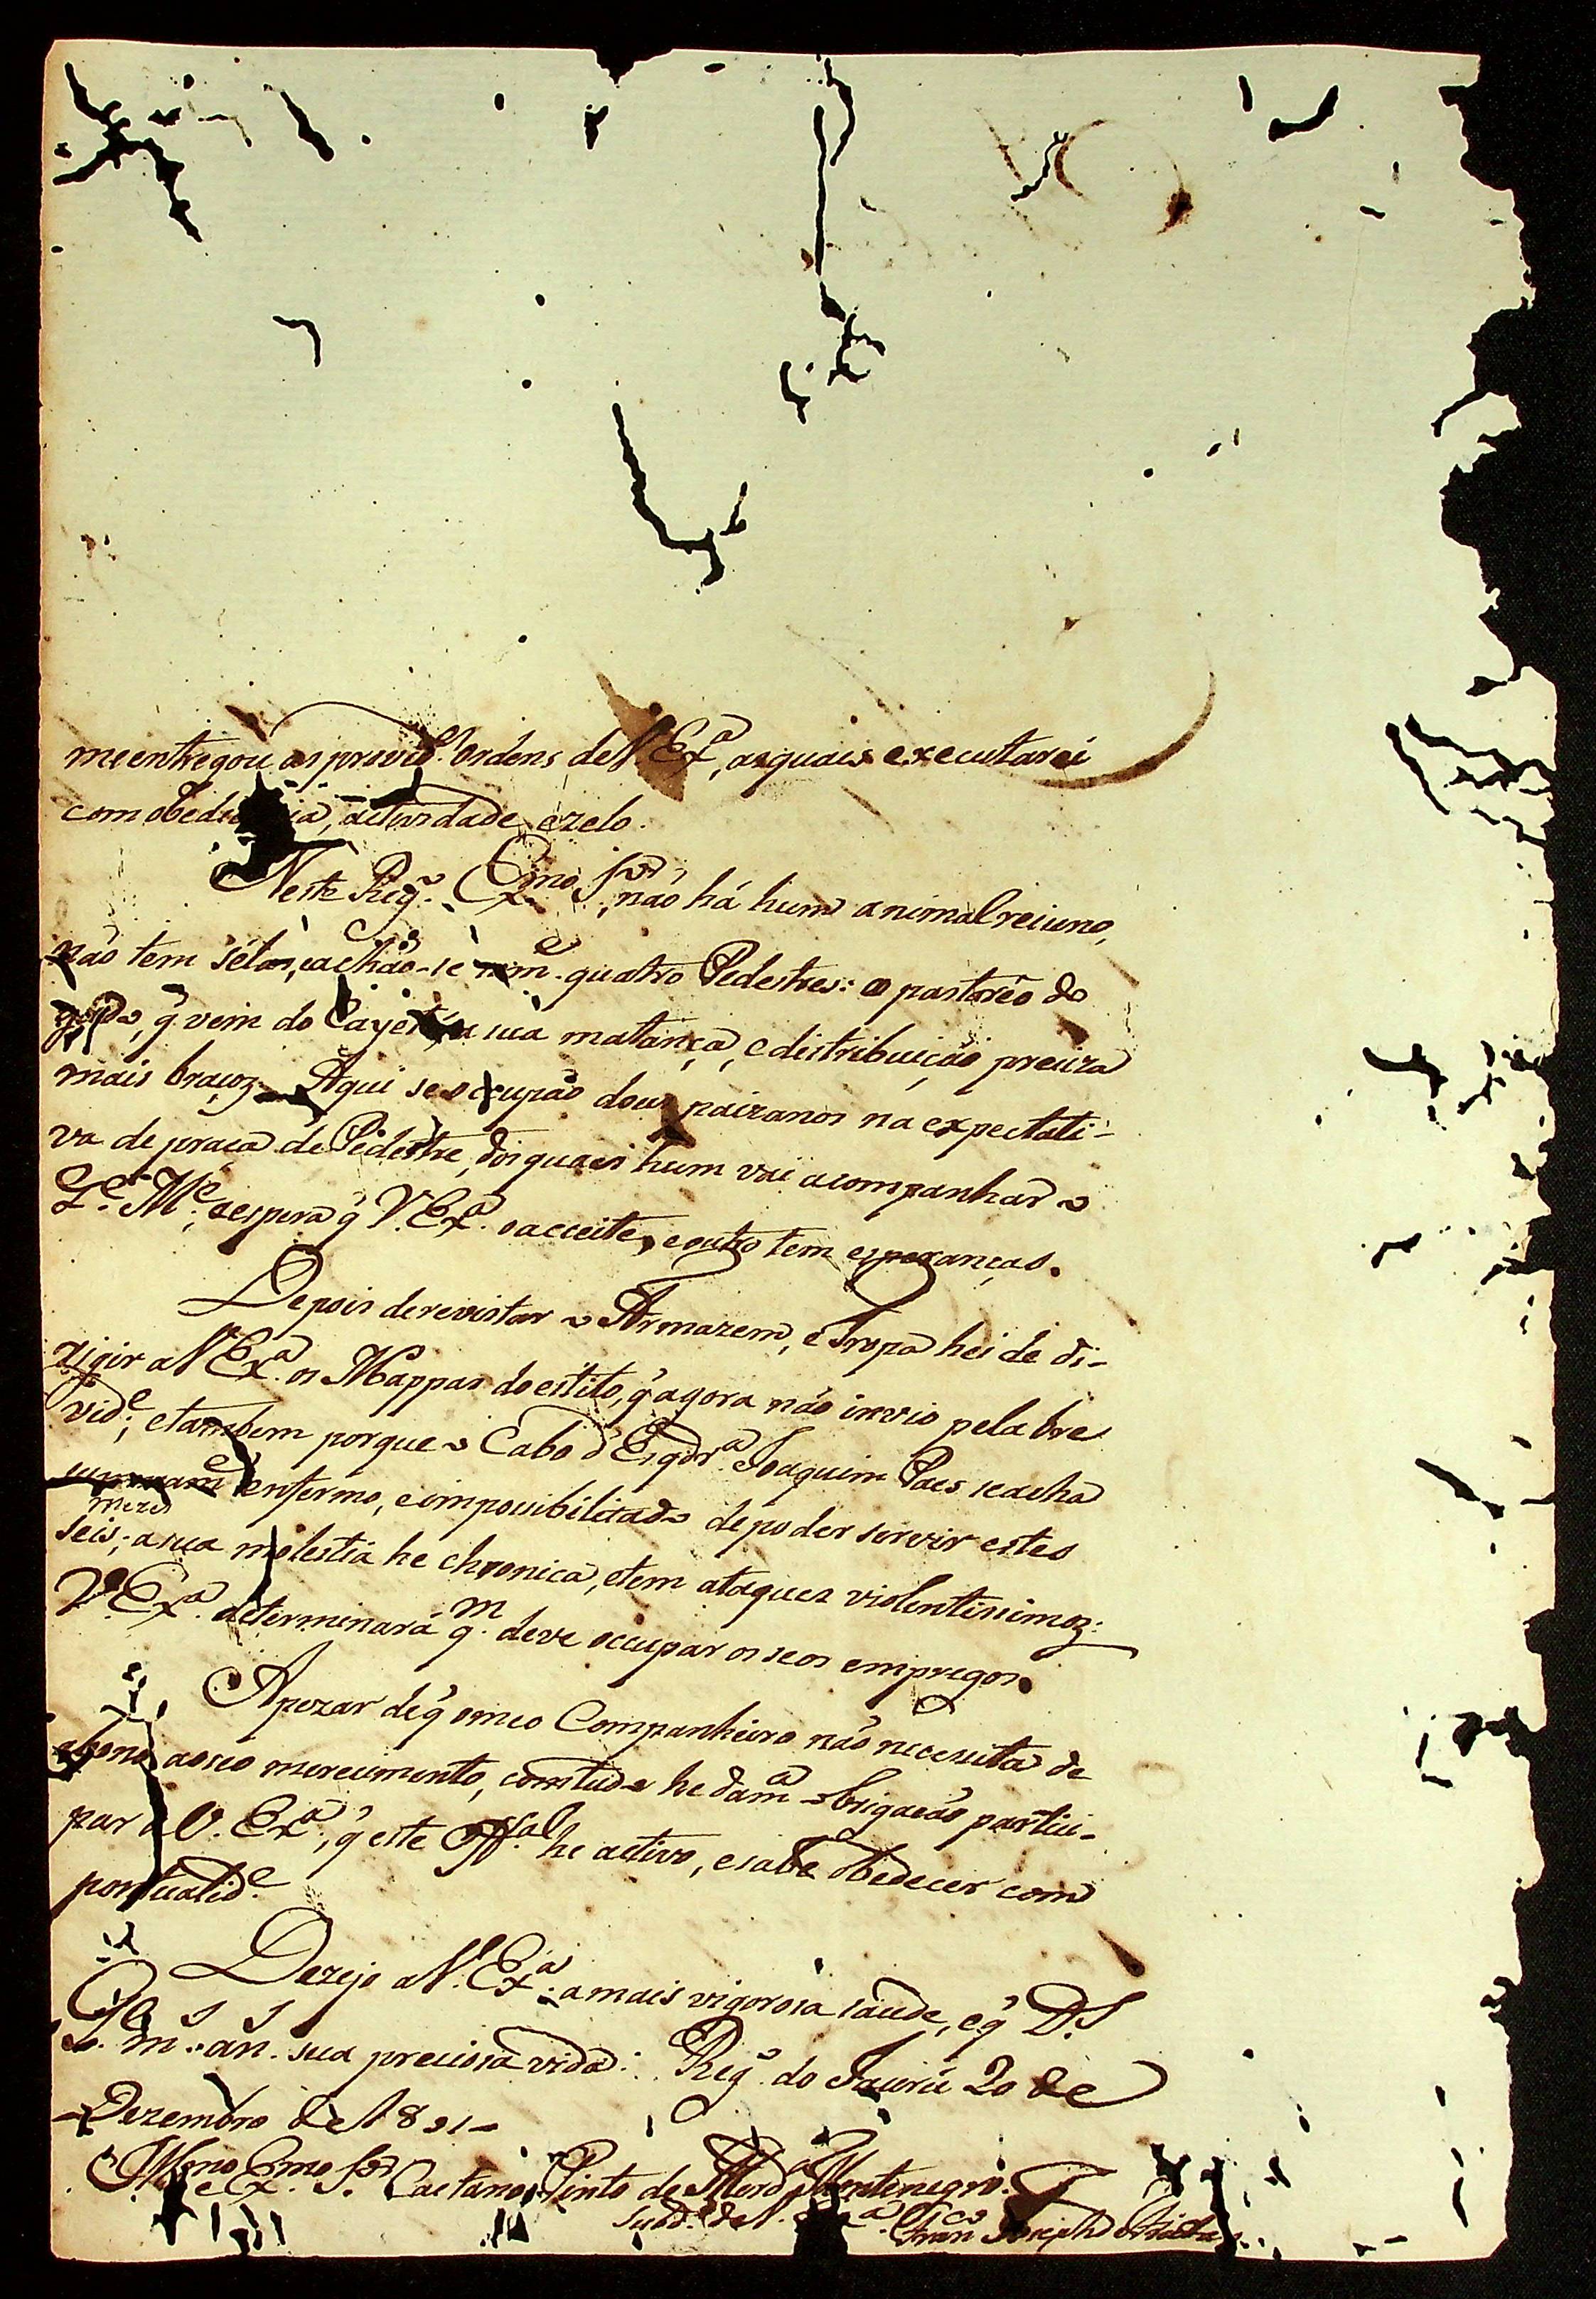 me entregou as provid.ˢ Ordens de V. Exª, as quais executarei
com obediencia, actividade e zelo.
Neste Reg.º Exmo Sr não há hum animal reiuno,
não tem sélas, e achão-se som.ᵉ quatro Pedestres: o pastoréo do
gado, q̃ vem do Cayeté, a sua matança, e distribuição preciza
mais braços. Aqui se occupão dous paizanos na expectati-
va de praça de Pedestre, dos quaes hum vai acompanhar o
T.ᵉ M.ᵉ, e espera q̃ V. Exª. o acceite, e outro tem esperanças.
Depois de revistar o Armazem, e Tropa hei de di-
rigir a V. Exª. os Mappas do estilo, q̃ agora não invio pela bre
vid.ᵉ; e tambem porque o Cabo d'Esqdrª Joaquim Paes se acha
enfermo, e impossibilitado de poder servir estes
mezes
seis; a sua molestia he chronica, e tem ataques violentissimos:
V. Exª. determinará q.ᵐ deve occupar os seos empregos.
Apezar de q̃ o meo Companheiro não necessita de
abono ao seo merecimento, comtudo he da mª obrigação partici-
par a V. Exª., q̃ este Off.ᵃˡ he activo, e sabe obedecer com
pontualid.ᵉ
Dezejo a V. Exª. a mais vigorosa saude, e q̃ D.ˢ
G.ᵉ m.ˢ an.ˢ sua preciosa vida. Reg.º do Jaurú 20 de
Dezembro de 1801
Illmo e Exmo Sr. Caetano Pinto de Mirdª Montenegro.
Subd.º de V. Exª. Franco Joseph